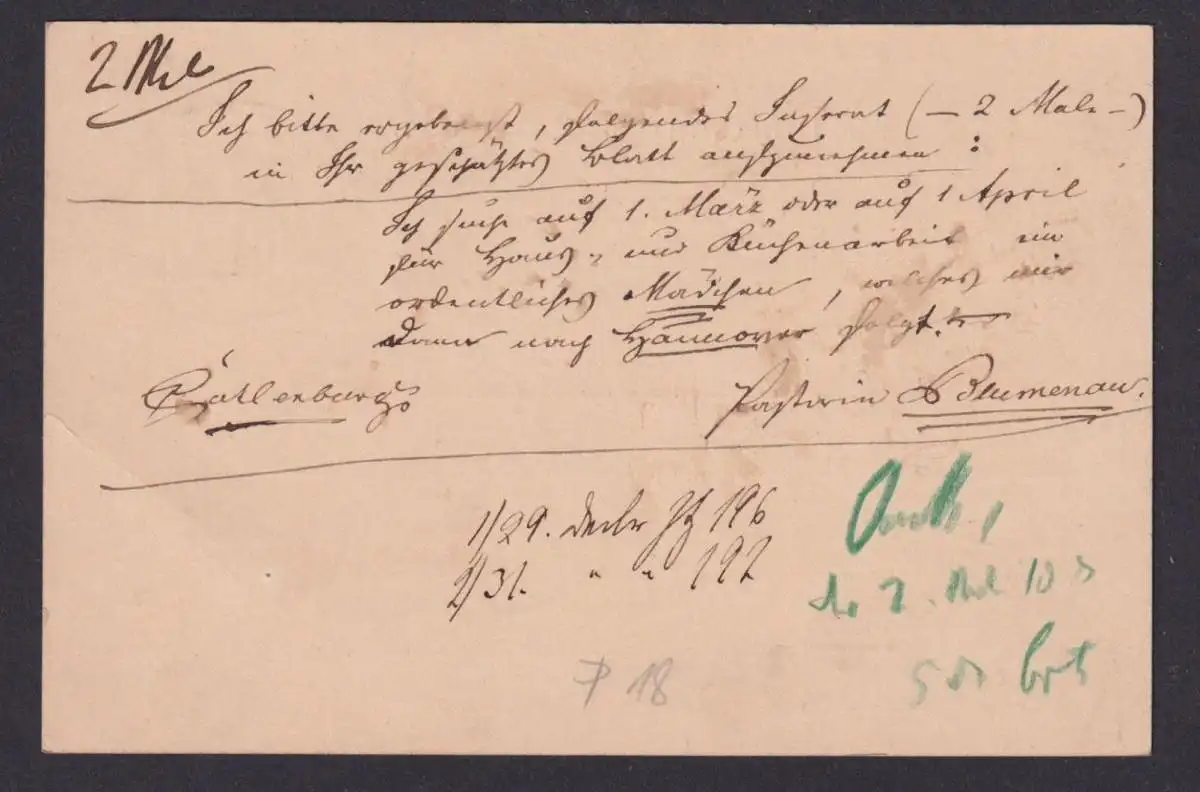 2 Mal
Ich bitte ergebenst, folgendes Inserat (– 2 Male –)
in Ihr geschätztes Blatt aufzunehmen :
Ich suche auf 1. März oder auf 1 April
für Haus- und Küchenarbeit ein
ordentliches Mädchen, welches mir
dann nach Hannover folgt.
Catlenburg
Pastorin Blumenau.
1/29. 196
2/31. " " 197
P 18